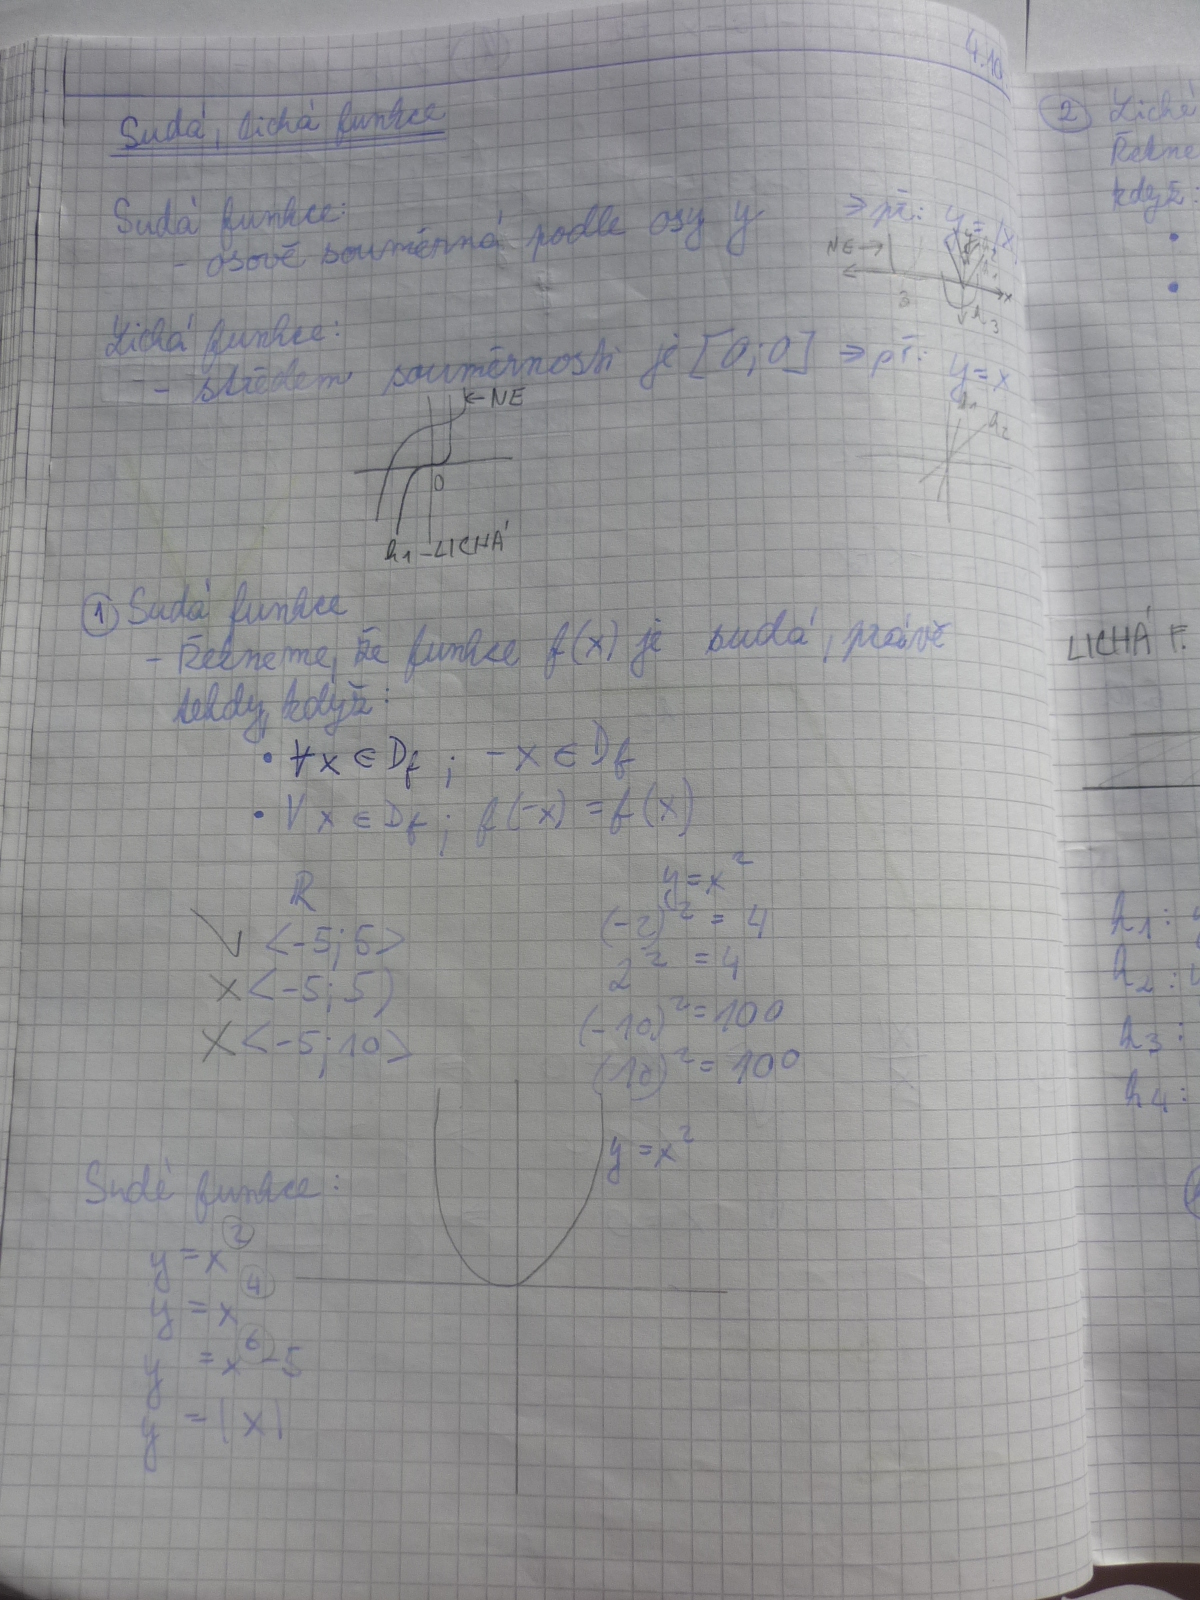 4.10
Sudá, lichá funkce
Sudá funkce:
- osově souměrná podle osy y => př: y=|x
NE →
3
x
h3
Lichá funkce:
- středem souměrnosti je [0;0] => př: y=x
← NE
h1
h2
0
h1 - LICHÁ
1 Sudá funkce
- Řekneme, že funkce f(x) je sudá, právě
tehdy, když:
• ∀x ∈ Df ; -x ∈ Df
• ∀x ∈ Df ; f(-x) = f(x)
ℝ
<-5;5>
X <-5;5)
X <-5;10>
y=x²
(-2)² = 4
2² = 4
(-10)² = 100
(10)² = 100
y = x²
Sudé funkce:
y = x²
y = x⁴
y = x⁶-5
y = |x|
2 Lichá
Řekne
když:
•
•
LICHÁ F.
h1:
h2:
h3:
h4: